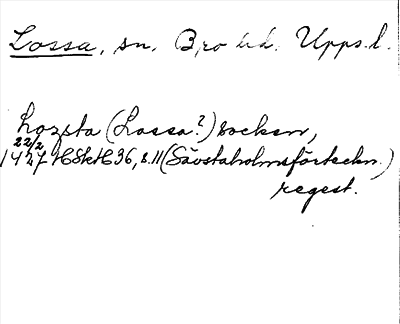 Lossa, sn. Bro hd. Upps. l.
Lozsta (Lossa?) socken,
22/2
1447 HSkH 36, s. 11 (Sävstaholmsförteckn.)
regest.